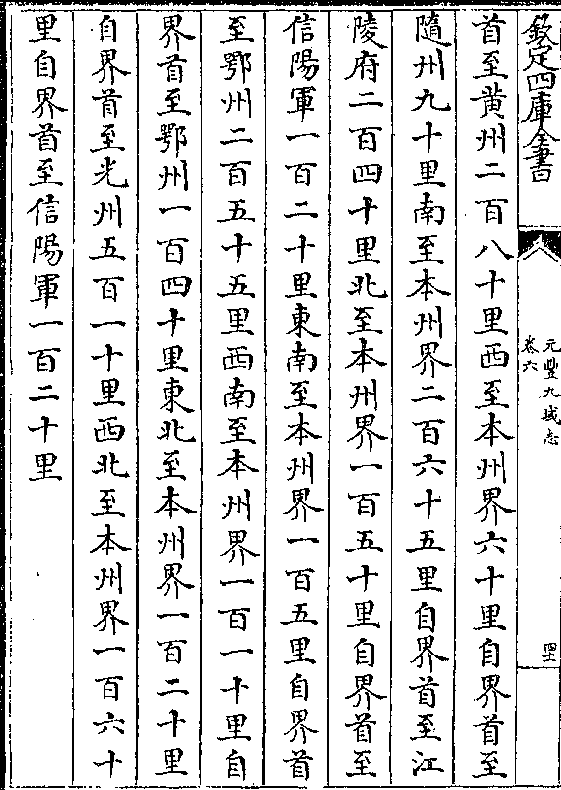 欽定四庫全書
元豐九域志
卷六
首至黄州二百八十里西至本州界六十里自界首至
隨州九十里南至本州界二百六十五里自界首至江
陵府二百四十里北至本州界一百五十里自界首至
信陽軍一百二十里東南至本州界一百五里自界首
至鄂州二百五十五里西南至本州界一百一十里自
界首至鄂州一百四十里東北至本州界一百二十里
自界首至光州五百一十里西北至本州界一百六十
里自界首至信陽軍一百二十里